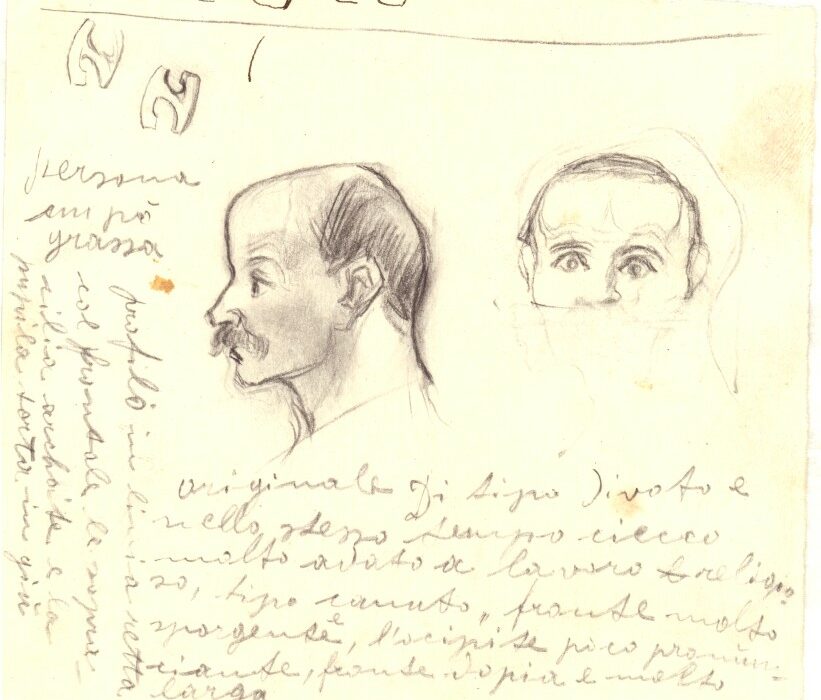 persona
un pó
grassa
profilo in linia retta
col frontale le sopra-
cilia archoite e la
pupila torta in giù
originale di tipo divoto e
nello stesso tempo ciecco
molto adato a lavoro religio-
so, tipo canuto, fronte molto
sporgente, l'ocipite poco pronun-
ciante, fronte dopia e molto
larga